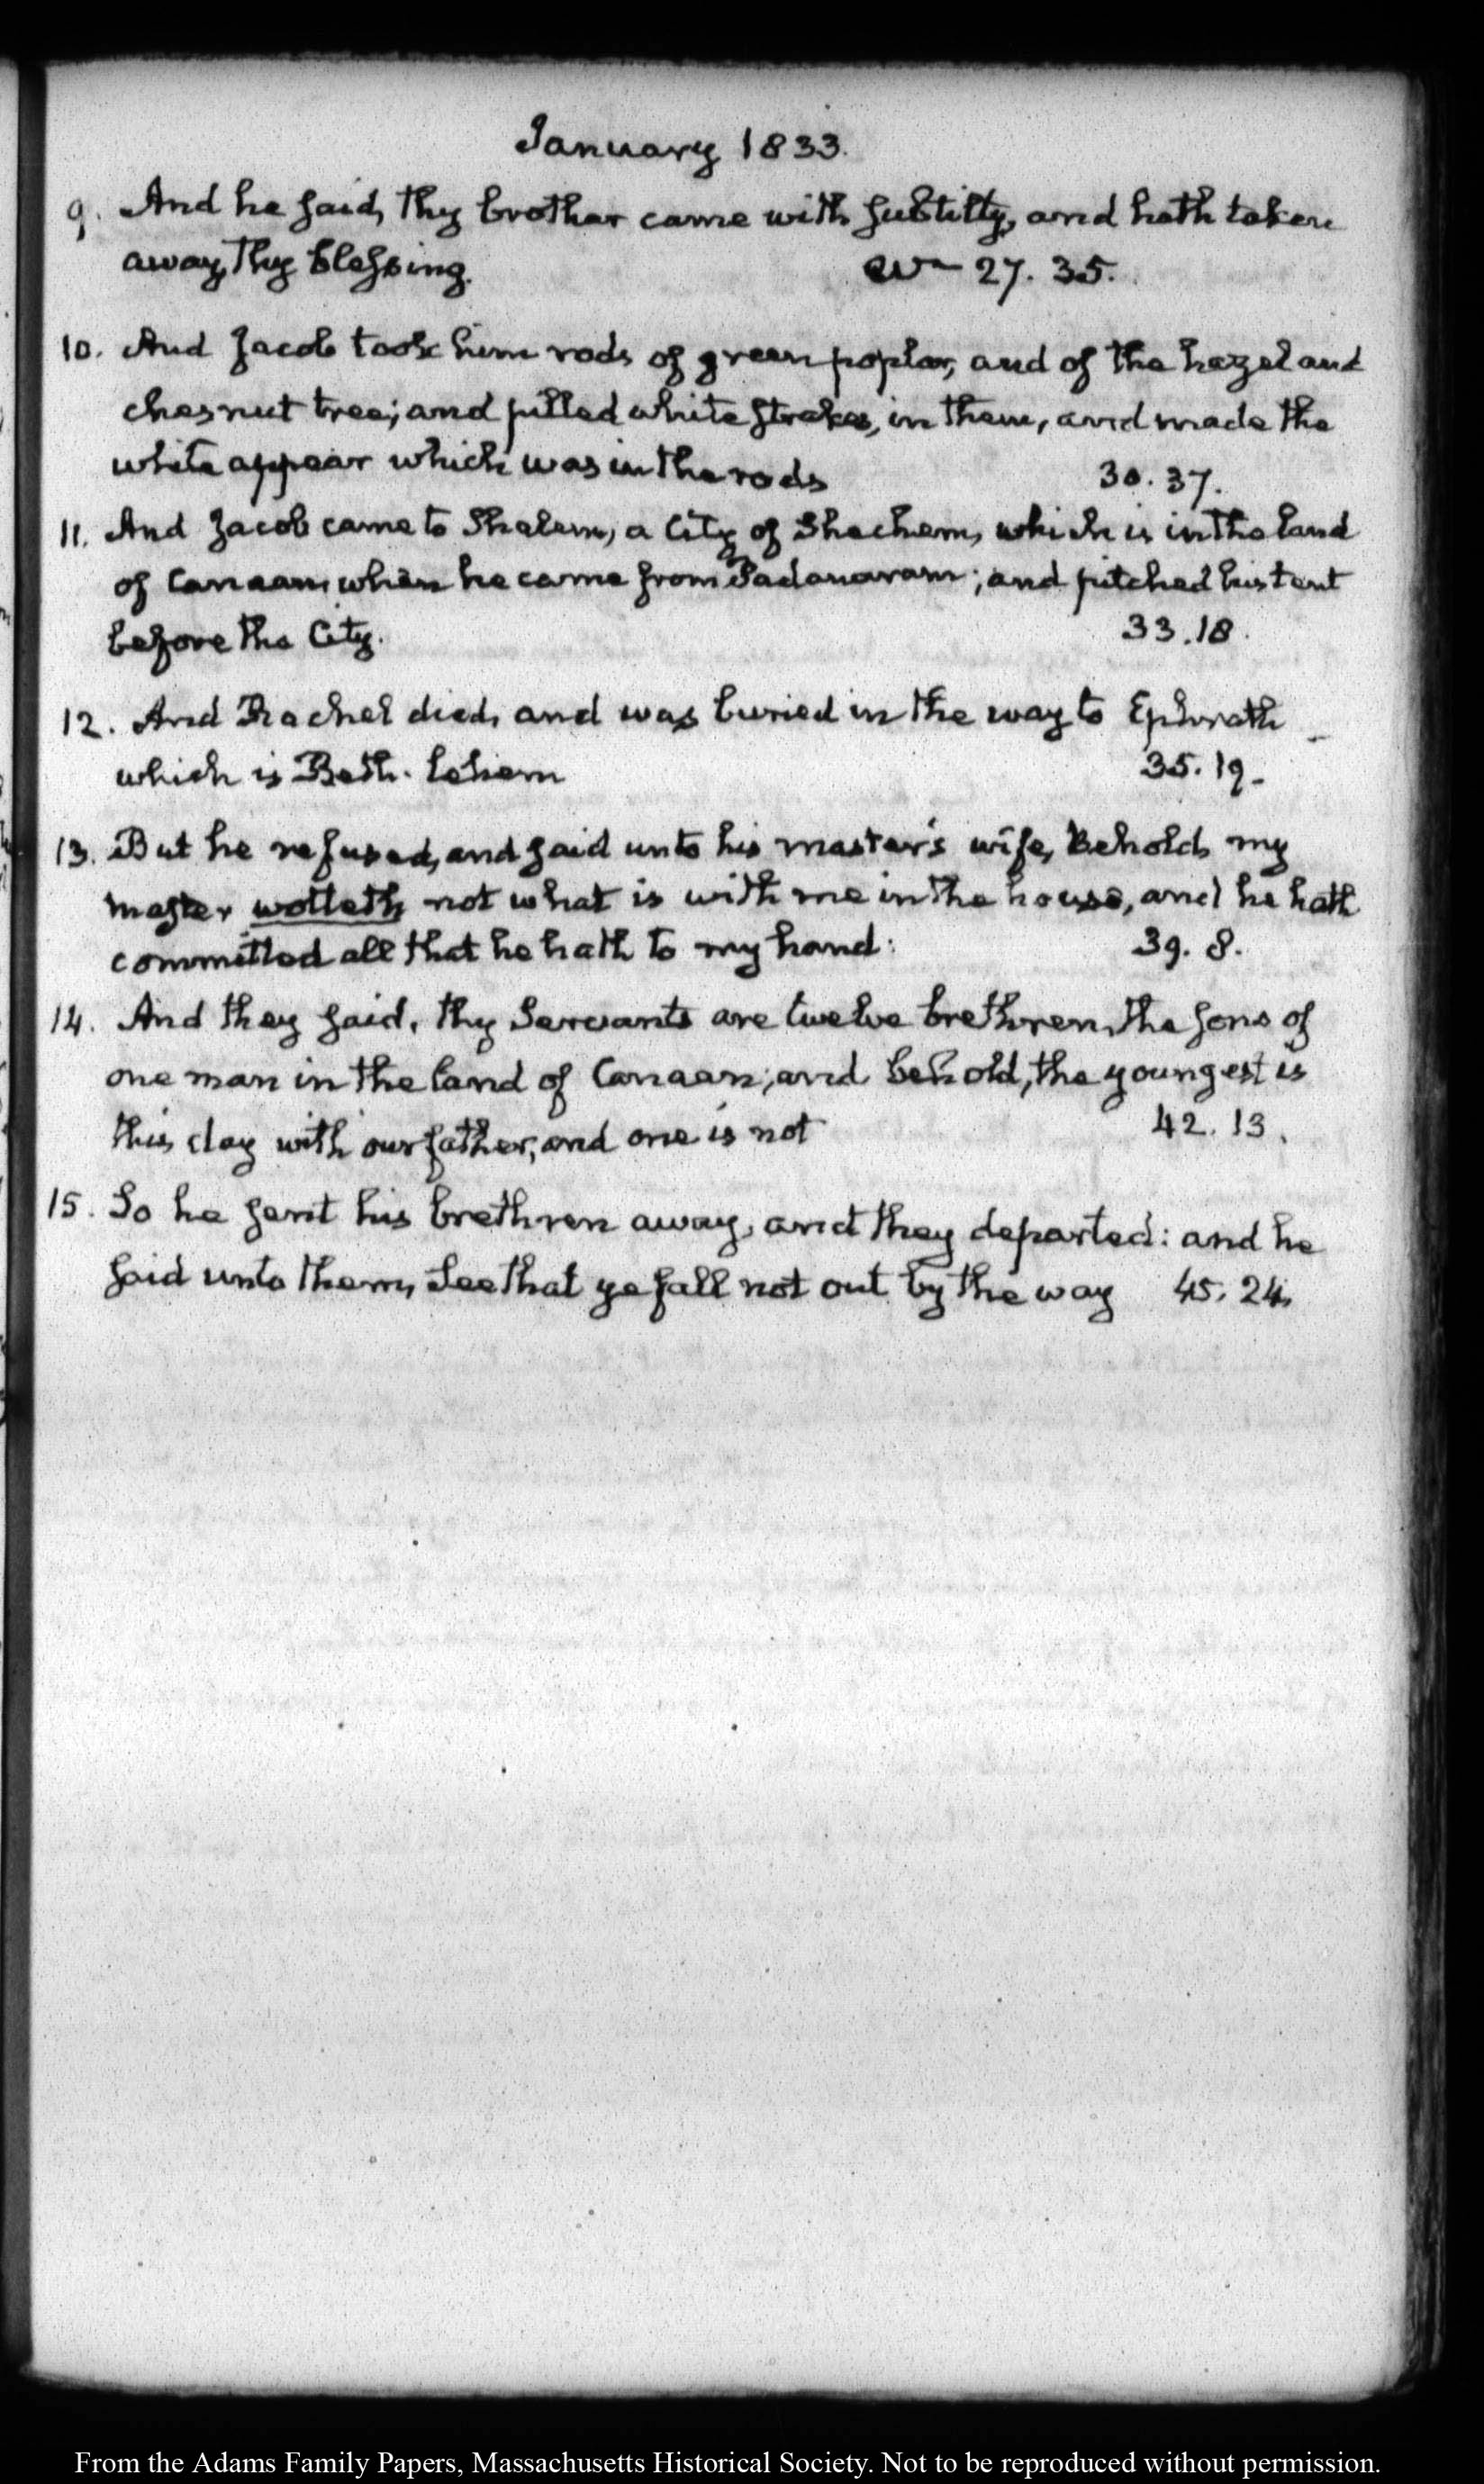 January 1833.
9. And he said, Thy brother came with subtilty, and hath taken
away thy blessing. 27. 35.
10. And Jacob took him rods of green poplar, and of the hazel and
chesnut tree; and pilled white strakes, in them, and made the
white appear which was in the rods 30. 37.
11. And Jacob came to Shalem, a City of Shechem, which is in the land
of Canaan, when he came from Padanaram; and pitched his tent
before the City. 33. 18.
12. And Rachel died, and was buried in the way to Ephrath
which is Beth-lehem 35. 19.
13. But he refused, and said unto his master's wife, Behold, my
master wotteth not what is with me in the house, and he hath
committed all that he hath to my hand: 39. 8.
14. And they said, thy Servants are twelve brethren, the sons of
one man in the land of Canaan; and behold, the youngest is
this day with our father, and one is not 42. 13.
15. So he sent his brethren away, and they departed: and he
said unto them, See that ye fall not out by the way 45. 24.
From the Adams Family Papers, Massachusetts Historical Society. Not to be reproduced without permission.